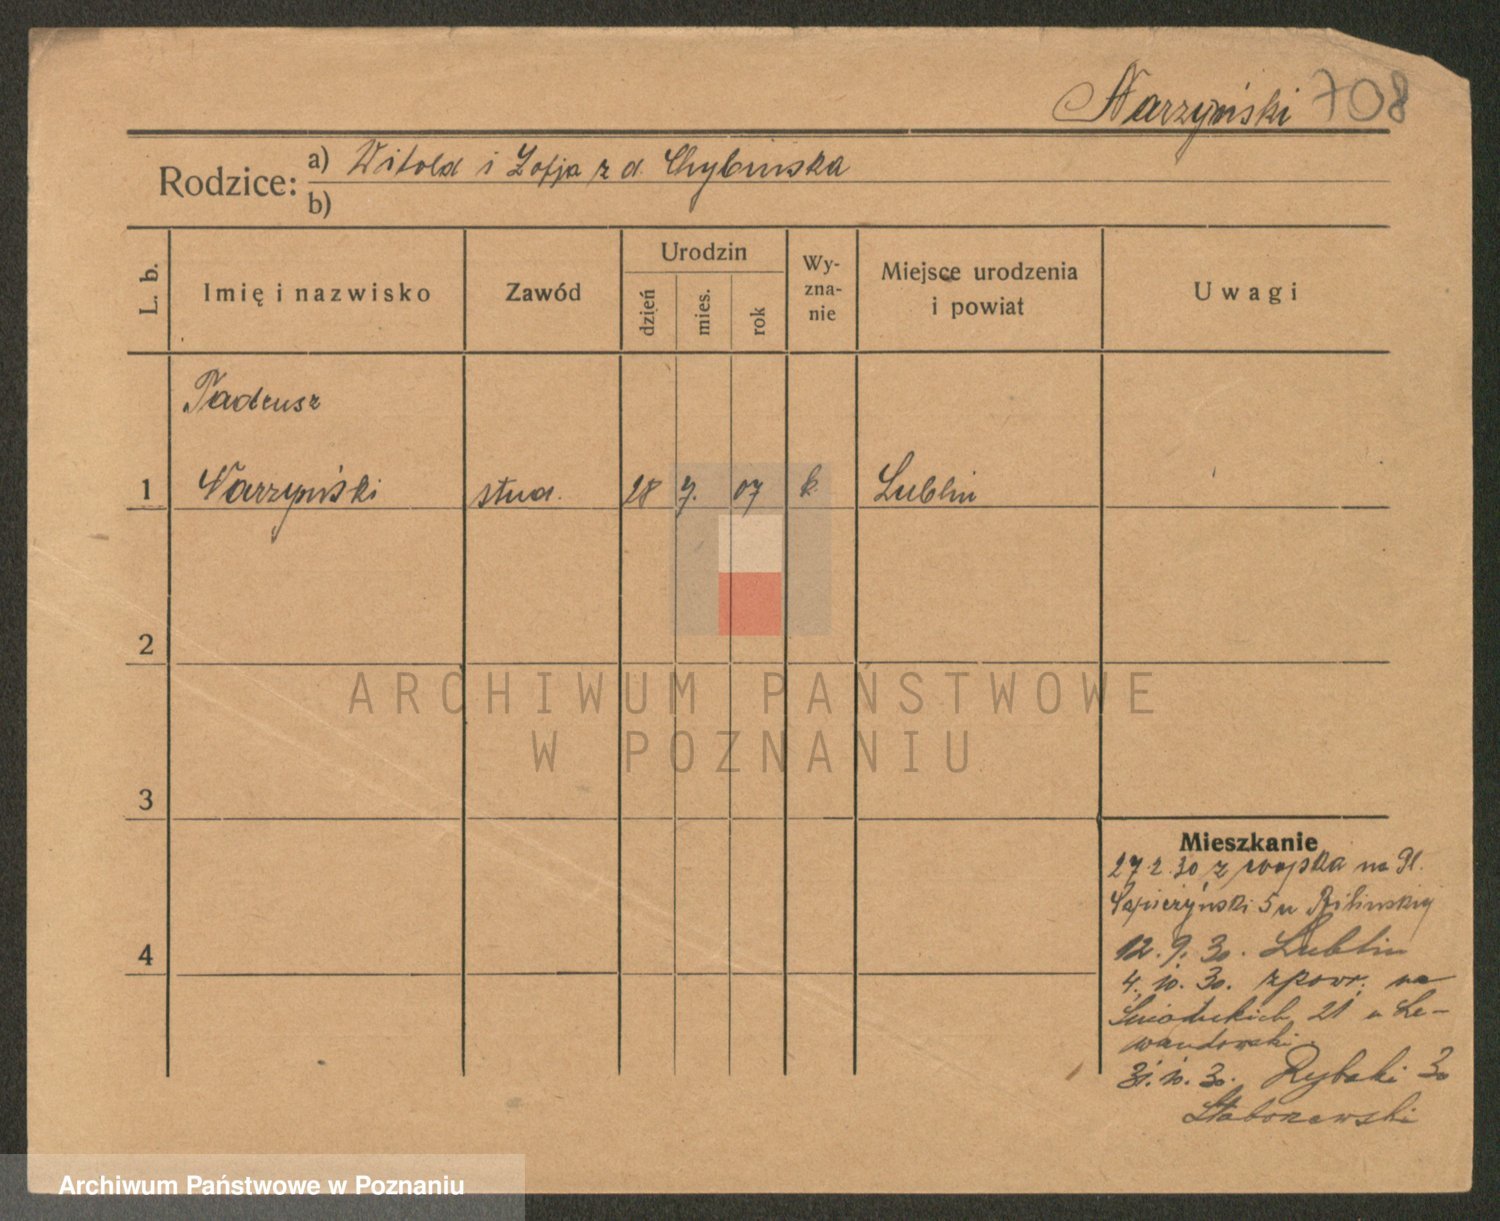 Narzyński 708
Rodzice: a) Witold i Zofja z d. Chybińska
b)
L. b.
Imię i nazwisko
Zawód
Urodzin
dzień
mies.
rok
Wy-
zna-
nie
Miejsce urodzenia
i powiat
Uwagi
Tadeusz
1 Narzyński stud. 28 7. 07 k. Lublin
2
3
4
ARCHIWUM PAŃSTWOWE
W POZNANIU
Mieszkanie
27.2.30 z wojska na
5 u Bilińskiej
12. 9. 30. Lublin
4. 10. 30. z powr. na
Śniadeckich 21 u Le-
wandowski
31. 10. 30. Rybaki 30
Archiwum Państwowe w Poznaniu